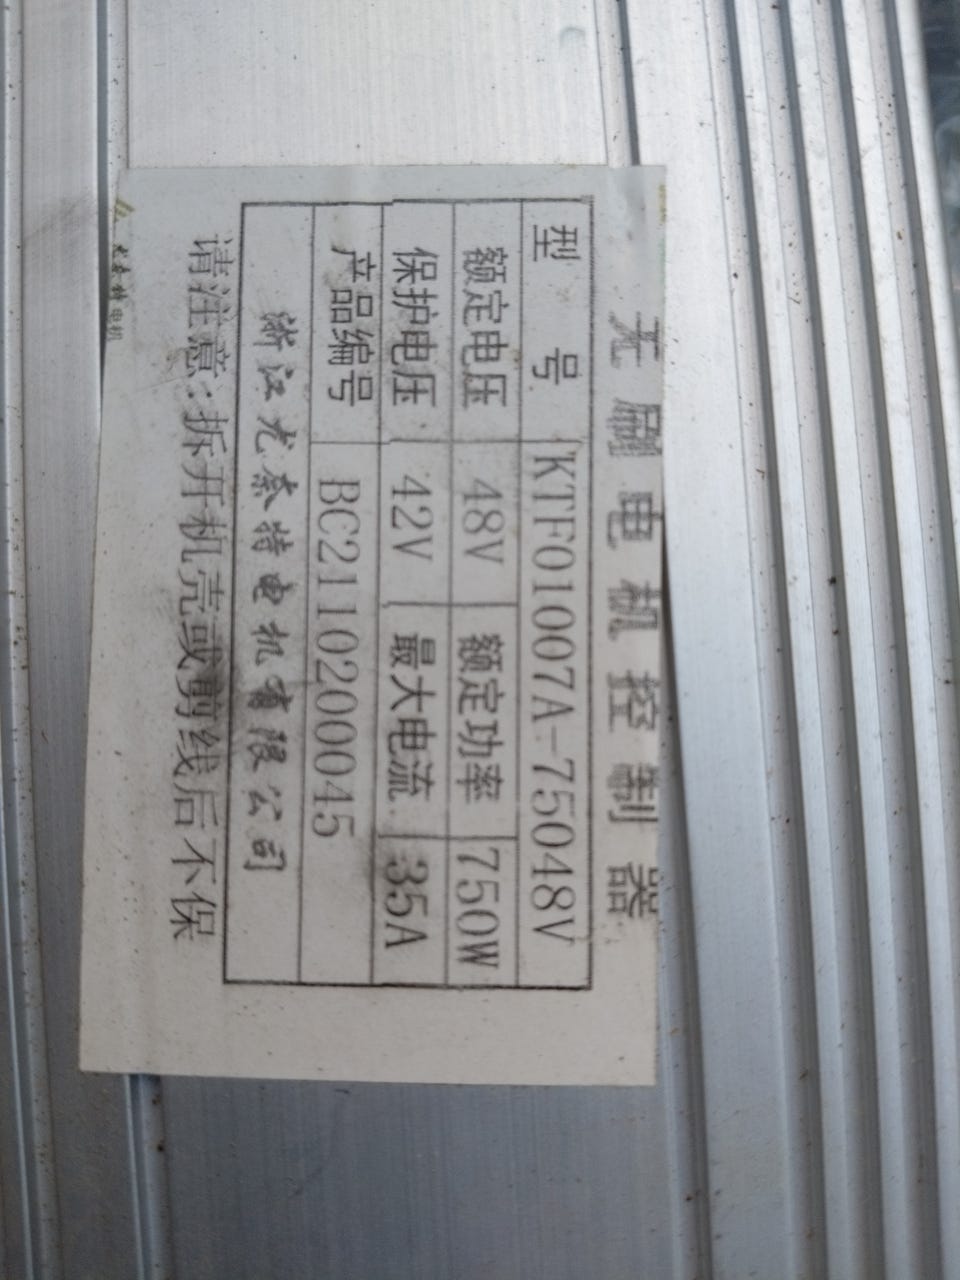 无刷电机控制器
型号 KTF01007A-75048V
额定电压 48V 额定功率 750W
保护电压 42V 最大电流 35A
产品编号 BC2110200045
浙江尤奈特电机有限公司
请注意:拆开机壳或剪线后不保
尤奈特电机